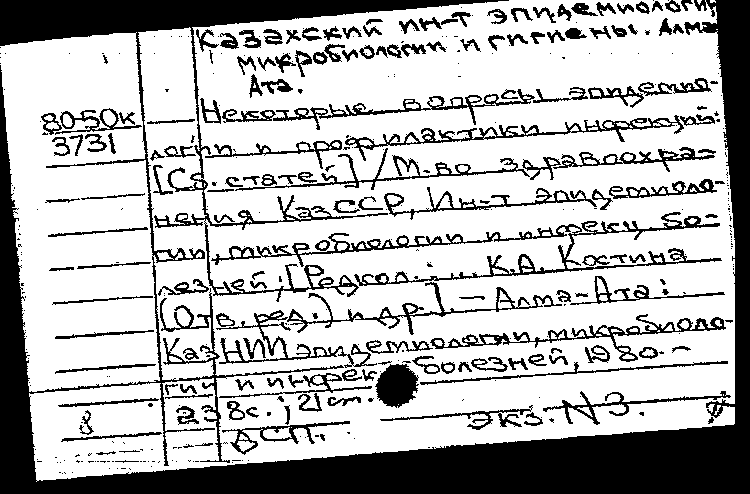 Казахский ин-т эпидемиологии,
микробиологии и гигиены. Алма-
Ата.
80-50к
3731
Некоторые вопросы эпидемио-
логии и профилактики инфекций:
[Сб. статей] / М-во здравоохра-
нения КазССР, Ин-т эпидемиоло-
гии, микробиологии и инфекц. бо-
лезней; [Редкол.: ... К.А. Костина
(Отв. ред.) и др.]. - Алма-Ата:
КазНИИ эпидемиологии, микробиоло-
гии и инфек. болезней, 1980. -
238с.; 21 см.
8
ДСП.
экз. N3.